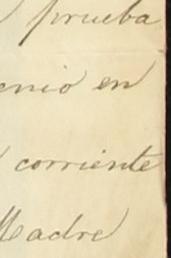 prueba
en
corriente
Madre